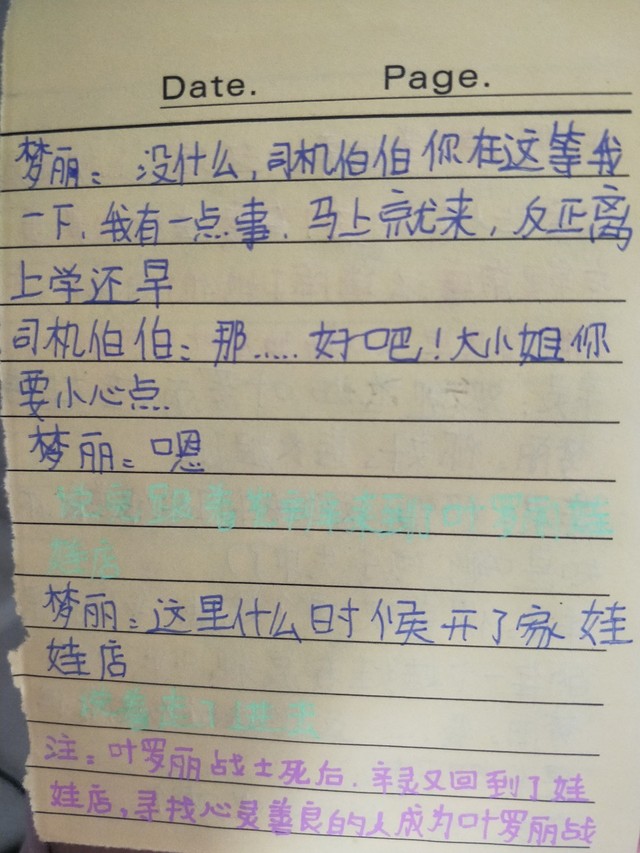 Date. Page.
梦丽：没什么，司机伯伯你在这等我
一下，我有一点事，马上就来，反正离
上学还早
司机伯伯：那……好吧！大小姐你
要小心点
梦丽：嗯
跟着 来到了叶罗丽娃
娃店
梦丽：这里什么时候开了家娃
娃店
说着走了进去
注：叶罗丽战士死后，辛灵又回到了娃
娃店，寻找心灵善良的人成为叶罗丽战